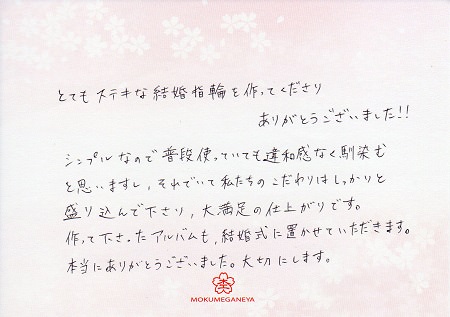 とてもステキな結婚指輪を作ってくださり
ありがとうございました!!
シンプルなので普段使っていても違和感なく馴染む
と思いますし、それでいて私たちのこだわりはしっかりと
盛り込んで下さり、大満足の仕上がりです。
作って下さったアルバムも、結婚式に置かせていただきます。
本当にありがとうございました。大切にします。
MOKUMEGANEYA